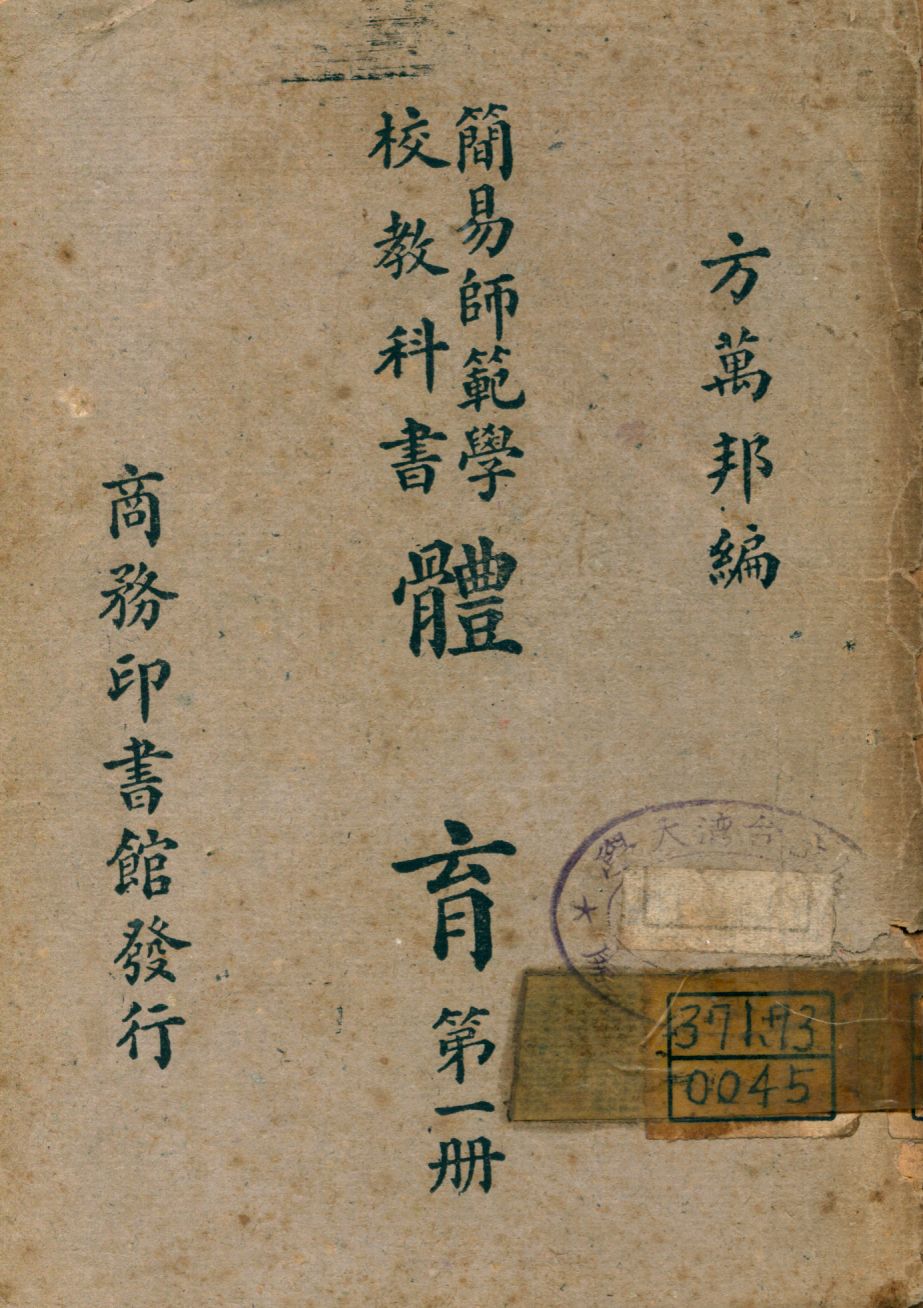 方萬邦編
簡易師範學
校教科書
體育
第一册
商務印書館發行
0045